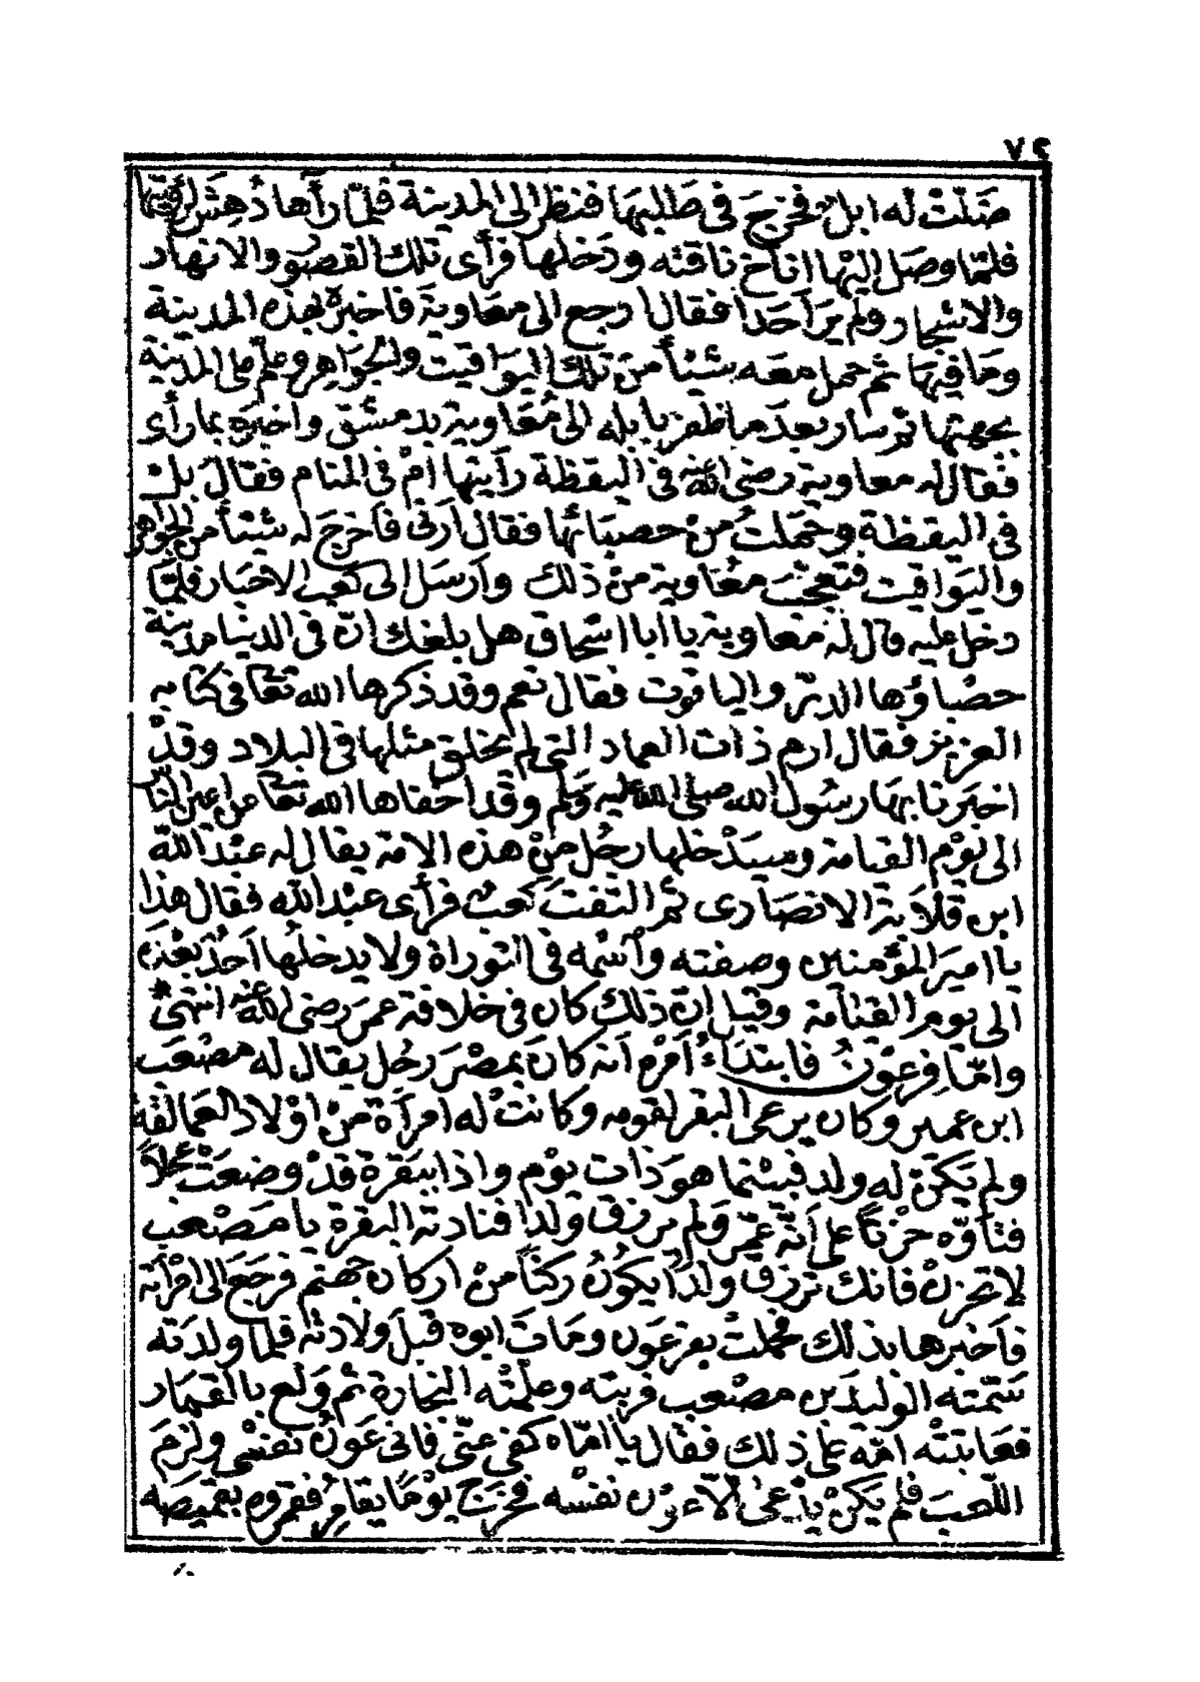 ٧٤
ضَلّتْ له ابلٌ فخرَجَ فى طَلبهَا فنظرَ الى المدينة فلمّا رأها دُهِشَ لرؤيتها
فلمّا وصَل اليْها اناخ ناقته ودَخلها فرأى تلك القصور والانهار
والاشجار ولم يَرَ أحَداً فقال أرجع الى معَاوية فاخبرهُ بهذه المدينة
ومَا فيهَا ثم حمل معَه شيْأً منْ تلك اليوَاقيت والجوَاهِر وعلّم على المدينة
بجهتها ثم سار بعدَ ما ظفر بابله الى مُعَاوية بدمشق واخبَره بما رأى
فقال له معاوية رضى الله عنه فى اليقظة رأيتها امْ فى المنام فقالَ بل
فى اليقظة وحَمَلتُ منْ حصبَائها فقال أرنى فاَخرجَ له شيْأً من الجوْهر
واليَواقيت فتعجّبَ معُاوية منْ ذلك وارسَل الى كعب الاحبَار فلمّا
دخل عليه قال له معاوية يا ابا اسْحاق هل بلغك انّ فى الدنيا مدينة
حصْباؤها الدرّ والياقوت فقال نعم وقد ذكرها الله تعَالى فى كتابه
العزيز فقال ارم ذات العماد التى لم يخلق مثلها فى البلاد وقدْ
اخبَرنا بهَا رسُول الله صلى الله عليه وَسلم وقد اخفاها الله تعَالى من اعين النّاس
الى يوْم القيامة وسيَدْخلها رجُل منْ هذه الامة يقال له عبْد الله
ابن قلاَبة الانصَارى ثمّ التفتَ كعبٌ فرأى عبْد الله فقال هٰذا
يا اميرَ المؤمنين وصفته وآسْمه فى التوراة ولا يدخلُها اَحَدٌ بَعْدَه
الى يوم القيٰامة وقيل انّ ذلك كان فى خلافة عمرَ رضى الله عنه انتهىٰ *
وامّا فِرعَوْنُ فابتدَاءُ اَمْرهِ اَنه كانَ بمصْرَ رجُل يقال لَه مصْعَب
ابن عمير وكان يرعى البقر لقومه وكانتْ له امرأة منْ اوْلاد العمالقة
ولم يَكنْ له ولد فبيْنما هوَ ذات يوْم واذا ببَقرة قدْ وضعَتْ عجْلاً
فتأوّه حزْناً على اَنّه عُمِّر وَلم يرزق وَلدا فنادته البقرة يا مَصْعَب
لا تحزنْ فانك ترزق ولدًا يكوُنُ ركناً منْ اركان جَهنم فرجَعَ الى امْرأته
فاَخبرها بذلك فحملتْ بفرعَون ومَاتَ ابوه قبلَ ولادتْه فلما ولدَته
سَمّته الوليدَ بن مصْعب فربته وعلّمتْه النجارة ثم وَلع بالقمَار
فعَاتبتْه امّه على ذلك فقال يا امّاه كفى عنّى فانى عَوْنُ نفسْى ولزمَ
اللّعبَ فلم يَكنْ يدْعىٰ الّا عوْن نفسْه فخرَج يوْمًا يقامِرُ فقمرُوه بقميصَه